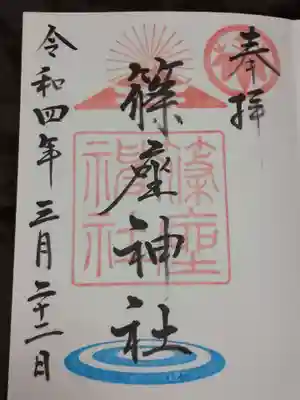 奉拝
篠座神社
篠座神社
令和四年三月二十二日